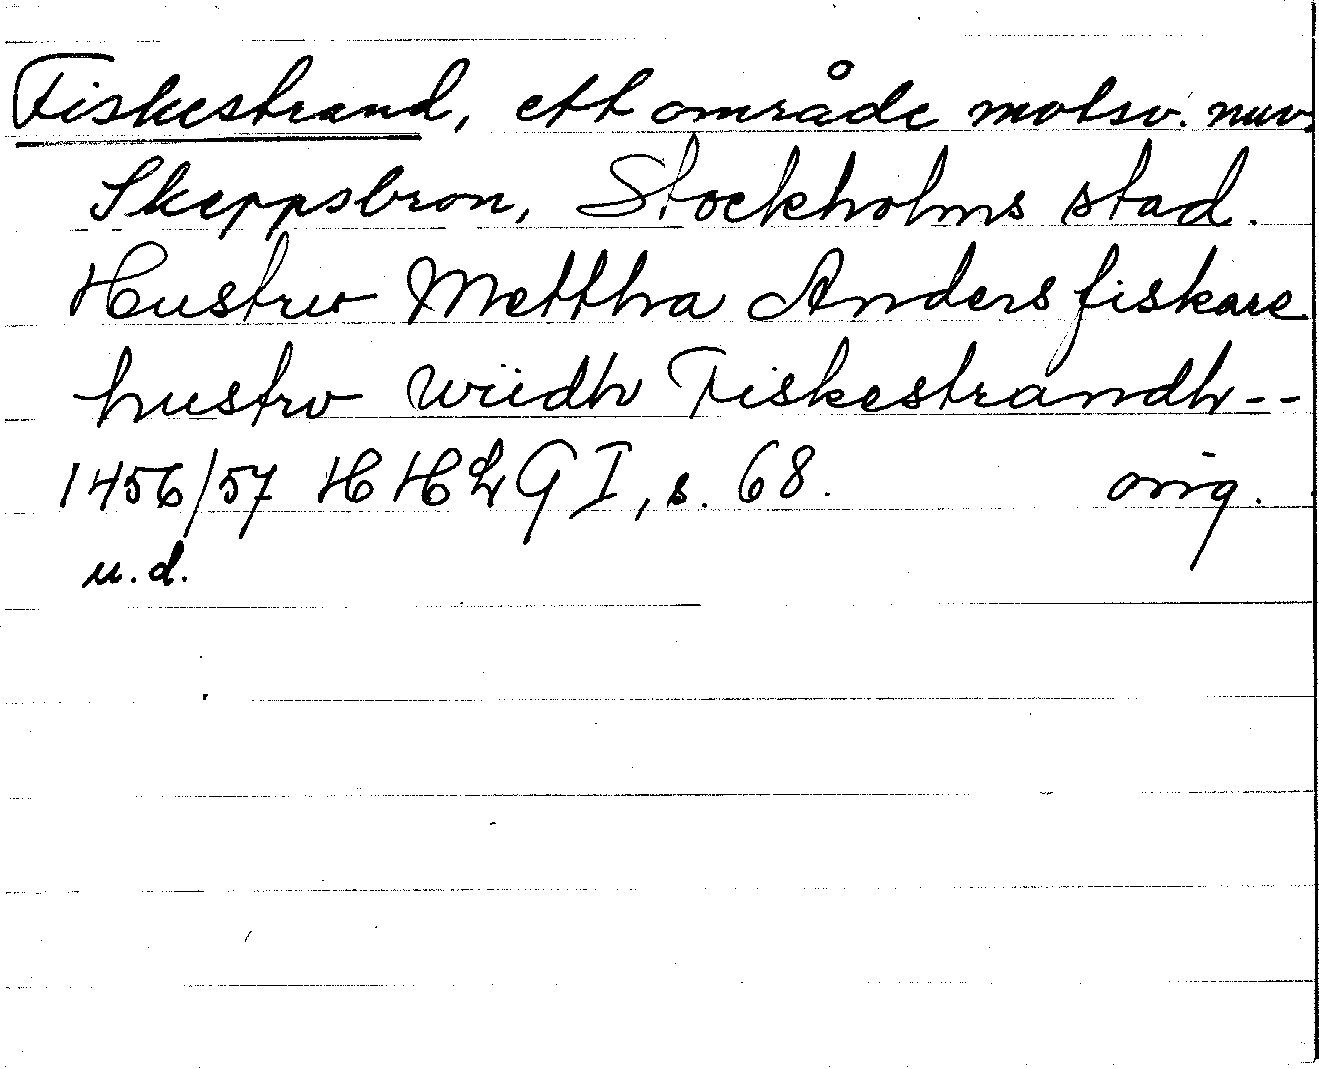 Fiskestrand, ett område motsv. nuv.
Skeppsbron, Stockholms stad.
Hustrv Mettha Anders fiskare
hustrv wiidh Fiskestrandh--
1456/57 HHLG I, s. 68. orig.
u.d.